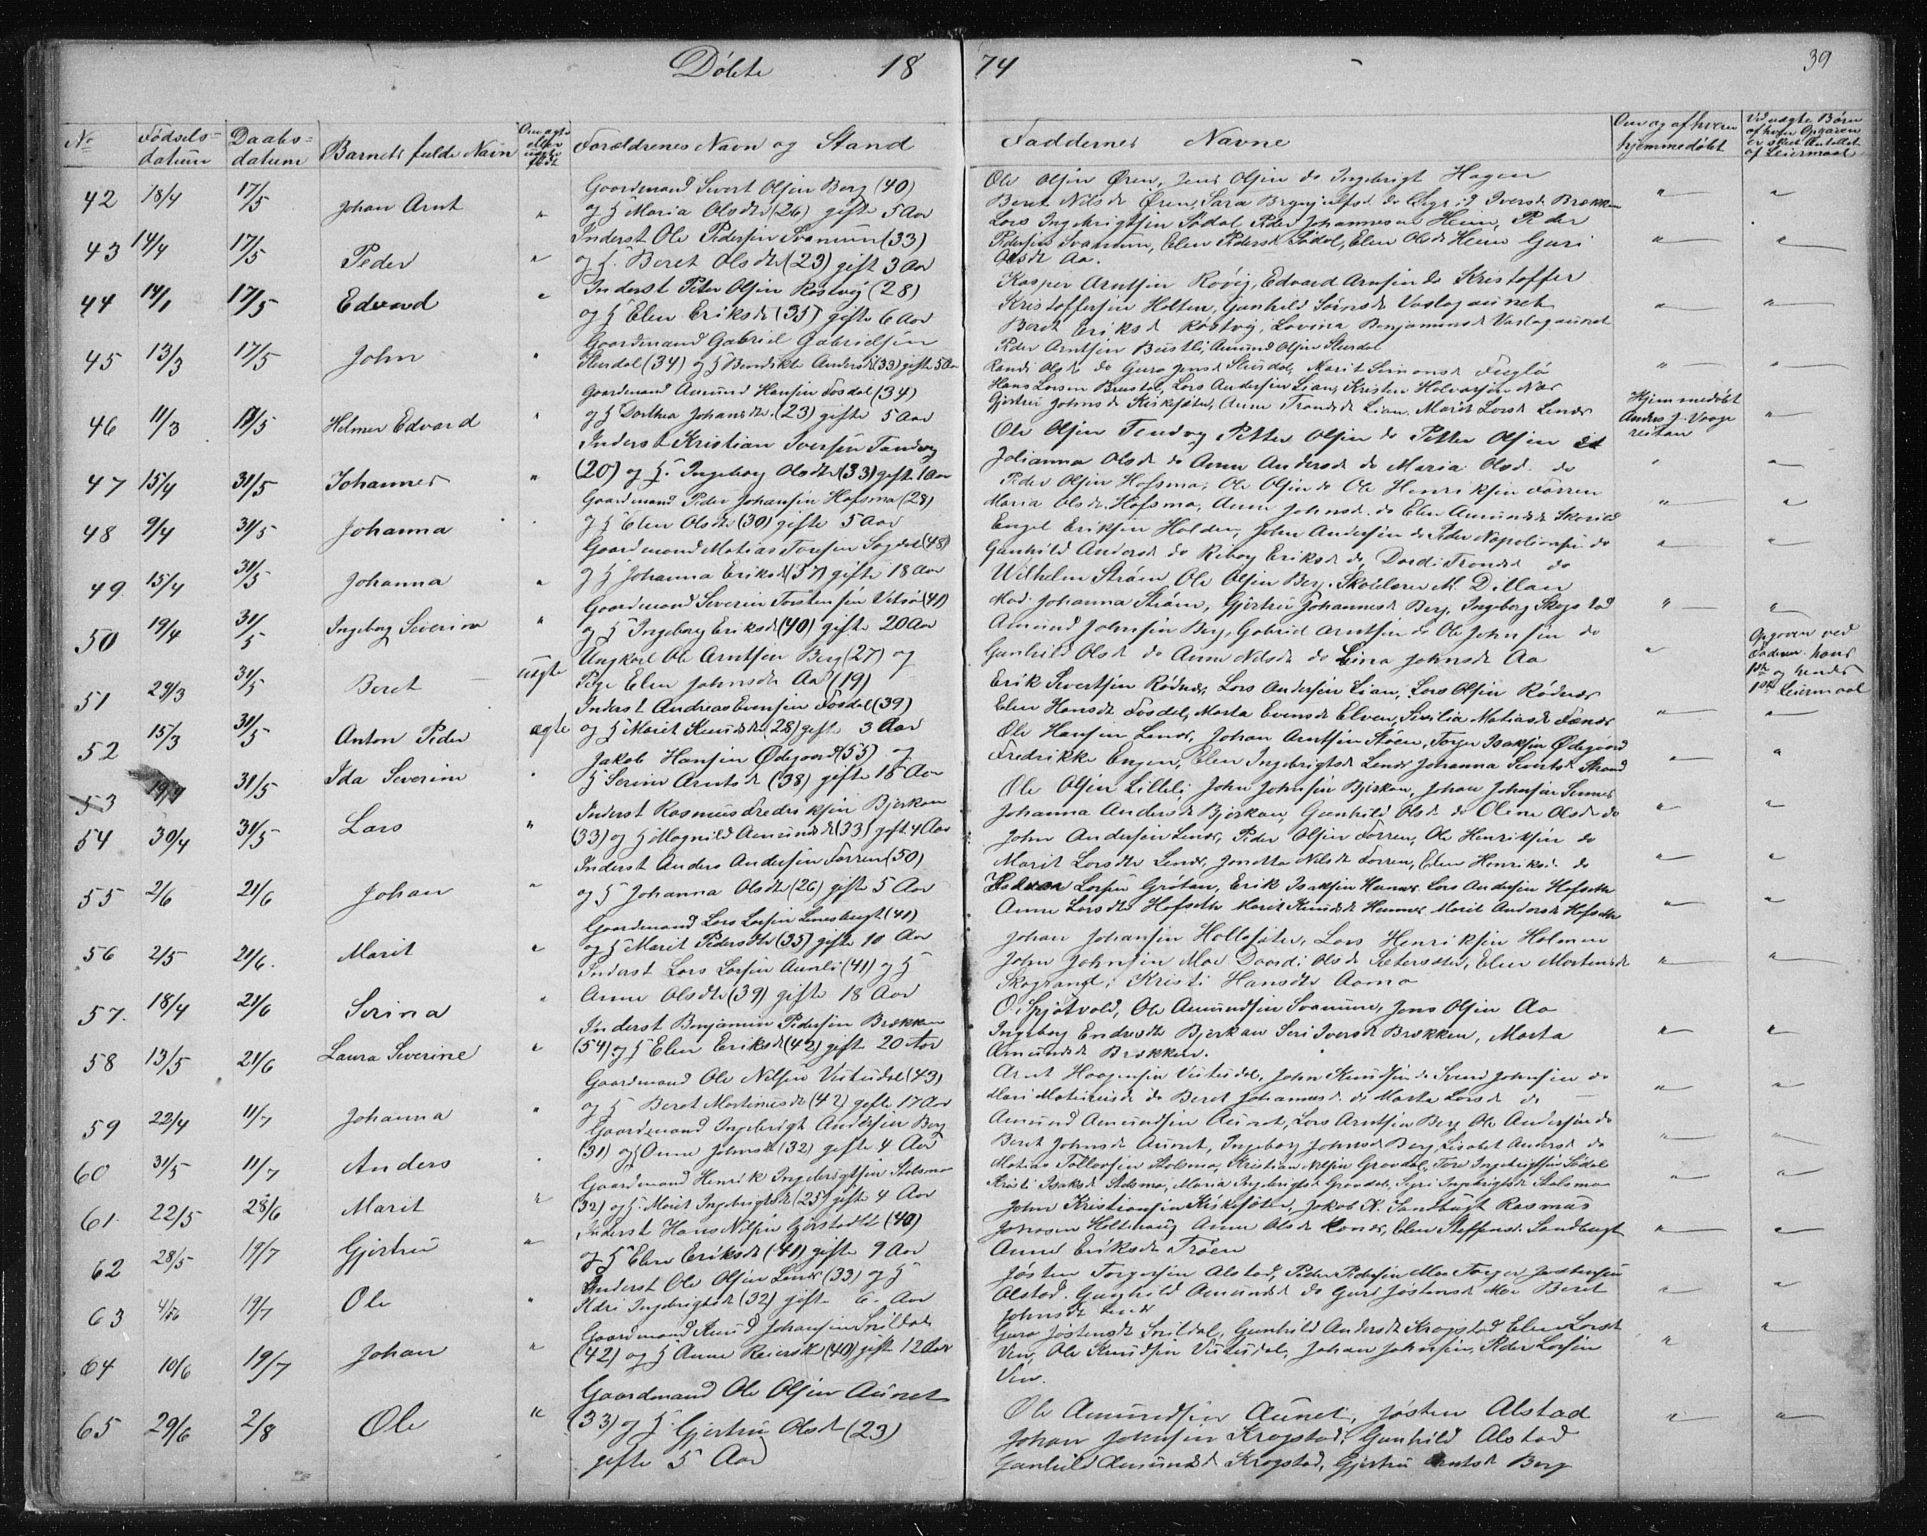 Døbte 18 74 39
No
Fødsels-datum
Daabs-datum
Barnets fulde Navn
Om ægte eller uægte født
Forældrenes Navn og Stand
Faddernes Navne
Om og af hvem hjemmedøbt
Ved uægte Børn af hvem Opgaven er skeet Antallet af Leiermaal
42 18/4 17/5 Johan Arnt "
Gaardmand Sivert Olsen Berg (40)
og H Maria Olsdtr (26) gifte 5 Aar
Ole Olsen Øren, Jens Olsen do Ingebrigt Hagen
Beret Nilsd. Øren, Sara do Sigrid Iversd. Brækken
43 14/4 17/5 Peder "
Inderst Ole Pedersen Svanum (33)
og H. Beret Olsdtr (23) gift 3 Aar
Lars Ingebrigtsen Sødal, Peder Johannesen Heim, Peder
Pedersen Svanum, Elen Pedersd. Sødal, Elen Olsd. Heim Guri
Olsdt. Aa.
44 14/1 17/5 Edvard "
Inderst Peter Olsen Røstvig (28)
og H Elen Eriksd. (35) gifte 6 Aar
Kasper Arntsen Røvig, Edvard Arnsen do Kristoffer
Kristoffersen Holten, Gunhild Vaslagaunet
Beret Eriksd. Røstvig, Lovina Benjaminsd. Vaslagaunet
45 13/3 17/5 John "
Gaardmand Gabriel Gabrielsen
Slusdal (34) og H Bendikte Andersd. (33) gifte 5 Aar
Peder Arntsen Bustli, Amund Olsen Slusdal
Randi Olsd. do Guru Jensd. Slusdal, Marit Simonsd. Fuglø
46 11/3 17/5 Helmer Edvard "
Gaardmand Amund Hansen Fosdal (34)
og H Dorthea Johansdtr. (23) gifte 5 Aar
Hans Larsen Bustad, Lars Andersen Lian, Kristen Halvorsen Næs
Gjertru Johnsd. Kirksæter, Anne Trondsd. Lian, Marit Larsd. Lenes
Hjemmedøbt
Anders J. Vaagereitan
47 15/4 31/5 Johannes "
Inderst Kristian Iversen Tandvog
(20) og H. Ingeborg Olsdtr (33) gifte 1 Aar
Ole Olsen Tandvog Petter Olsen do Petter Olsen
Johanna Olsd. do Anne Andersd. do Maria Olsd. do
48 9/4 31/5 Johanna
Gaardmand Peder Johansen Hofsmo (28)
og H Elen Olsdtr (30) gifte 5 Aar
Peder Olsen Hofsmo, Ole Olsen do Ole Henriksen Forren
Maria Olsd. Hofsmo, Anne Johnsd. do Elen Amundsd. Skorild
49 15/4 31/5 Johanna "
Gaardmand Matias Toresen Sogdal (48)
og H Johanna Eriksd. (37) gifte 18 Aar
Engel Eriksen Holden, John Andersen do Peder Napoleonsen do
Gunhild Andersd. do Eriksd. do, Dordi Trondsd. do
50 19/4 31/5 Ingeborg Severine "
Gaardmand Severin Torstensen Vitsø (41)
og H Ingeborg Eriksd. (40) gifte 20 Aar
Wilhelm Strøm, Ole Olsen Berg, Skolelærer M. Dillan
Mad. Johanna Strøm, Gjertru Johannesd. Berg, Ingeborg Skogstad
51 29/3 31/5 Beret uægte
Ungkarl Ole Arntsen Berg (27) og
Pige Elen Johnsdtr Aa (19)
Amund Johnsen Berg, Gabriel Arntsen do Ole Johnsen do
Gunhild Olsd. do Anne Nilsd. do Lina Johnsdt. Aa
Opgaven ved Faderen, hans 1ste og hendes 1ste Leiermaal
52 15/3 31/5 Anton Peder ægte
Inderst Andreas Evensen Fosdal (39)
og H Marit Knudsdtr (28) gifte 3 Aar
Erik Sivertsen Rødnæs, Lars Andersen Lian, Lars Olsen Rødnæs
Elen Hansdt. Fosdal, Marta Evensd. Elven, Sesilia Matiasdt. Tænæs
53 19/4 31/5 Ida Severine
Jakob Hansen Ødegaard (55) og
H Serine Arntsd. (38) gifte 18 Aar
Ole Hansen Lenes, Johan Arntsen Støen, Torger Isaksen Ødegaard
Fredrikke Engen, Elen Ingebrigtsd. Lenes Johanna Sivertsd. Strand
54 30/4 31/5 Lars "
Inderst Rasmus Fredriksen Bjerkan
(33) og H Magnild Amundsd. (33) gift 4 Aar
Ole Olsen Lilleli, John Johnsen Bjerkan, Johan Johnsen Sunnes
Johanna Andersd. Bjerkan, Gunhild Olsd. do Oline Olsd. do
55 2/6 21/6 Johan "
Inderst Anders Andersen Forren (50)
og H Johanna Olsdtr (26) gifte 5 Aar
John Andersen Lenes, Peder Olsen Forren, Ole Henriksen do
Marit Larsdtr Lenes, Jonetta Nilsdt. Forren, Elen Henriksd. do
56 2/5 21/6. Marit "
Gaardmand Lars Larsen Lenesbugt (41)
og H Marit Pedersdtr (35) gifte 10 Aar
Halvor Larsen Grøtan, Erik Isaksen Hennes, Lars Andersen Hofseth
Anne Larsdtr Hofseth Marit Knudsd. Hennes, Marit Andersd. Hofseth
57. 18/4 21/6 Serina "
Inderst Lars Larsen Aunli (41) og H
Anne Olsdtr (39) gifte 18 Aar
Johan Johansen Hollasæter, Lars Henriksen Holmen
John Johnsen Moe Dordi Olsd. Sætersæter, Elen Mortensd.
Skogrand, Kristi Hansdtr Aamo
58 13/5 21/6 Laura Severine "
Inderst Benjamin Pedersen Brækken
(54) og H Elen Eriksd. (42) gifte 20 Aar
O. Spjøtvold, Ole Amundsen Svanum, Jens Olsen Aa
Ingeborg Endresdt. Bjerkan Seri Iversd. Brækken, Marta
Amundsd. Brækken.
59 22/4 11/7 Johanna "
Gaardmand Ole Nilsen Vutudal (43)
og H Beret Mortensd. (42) gifte 17 Aar
Arnt Haagensen Vutudal, John Knudsen do Svend Johnsen do
Mari do Beret Johannesd. do Marta Larsd. do
60 31/5 11/7 Anders
Gaardmand Ingebrigt Andersen Berg
(31) og H Anne Johnsdt (32) gifte 4 Aar
Amund Amundsen Aunet, Lars Arntsen Berg, Ole Andersen do
Beret Johnsd. Aunet, Ingeborg Johnsd. Berg, Lisabet Andersd. do
61. 22/5 28/6 Marit "
Gaardmand Henrik Ingebrigtsen Stolsmo
(32) og H. Marit Ingebrigtsd. (25) gifte 4 Aar
Matias Tollevsen Stolsmo, Kristian Nilsen Grovdal, Tore Ingebrigtsen Sødal
Kristi Isaksd. Stolsmo, Maria Ingebrigtsd. Grovdal, Siri Ingebrigtsd. Stolsmo
62 28/5 19/7 Gjertru "
Inderst Hans Nilsen Gjerstadli (40)
og H Elen Eriksd. (41) gifte 9 Aar
John Kristiansen Kirksæter, Jakob K. Sandbugt Rasmus
Johnsen Holthaug Anne Olsd. Lenes, Elen Steffensd. Sandbugt
Anne Eriksd. Trøen
63 4/6 19/7 Ole "
Inderst Ole Olsen Lenes (33) og H
Ingebrigtsd. (32) gifte 6 Aar
Jøsten Torgersen Alstad, Peder Pedersen Moe Torger Jøstensen
Alstad. Gunhild Amundsd. do Guri Jøstensd. Moe Beret
Johnsdt. Lenes
64 10/6 19/7 Johan "
Gaardmand Knud Johansen Snildal
(42) og H Anne Reiersd. (40) gifte 12 Aar
Guro Jøstensdt. Snildal, Gunhild Andersdt. Krogstad Elen Larsdt
Ven, Ole Knudsen Vutudal, Johan Johnsen, Peder Larsen
Ven.
65 29/6 2/8 Ole "
Gaardmand Ole Olsen Aunet
(33) og H. Gjertru Olsdt (23)
gifte 5 Aar
Ole Amundsen Aunet, Jøsten Alstad
Johan Johnsen Krogstad, Gunhild Alstad
Gunhild Amundsd. Krogstad, Gjertru Arntsd. Berg